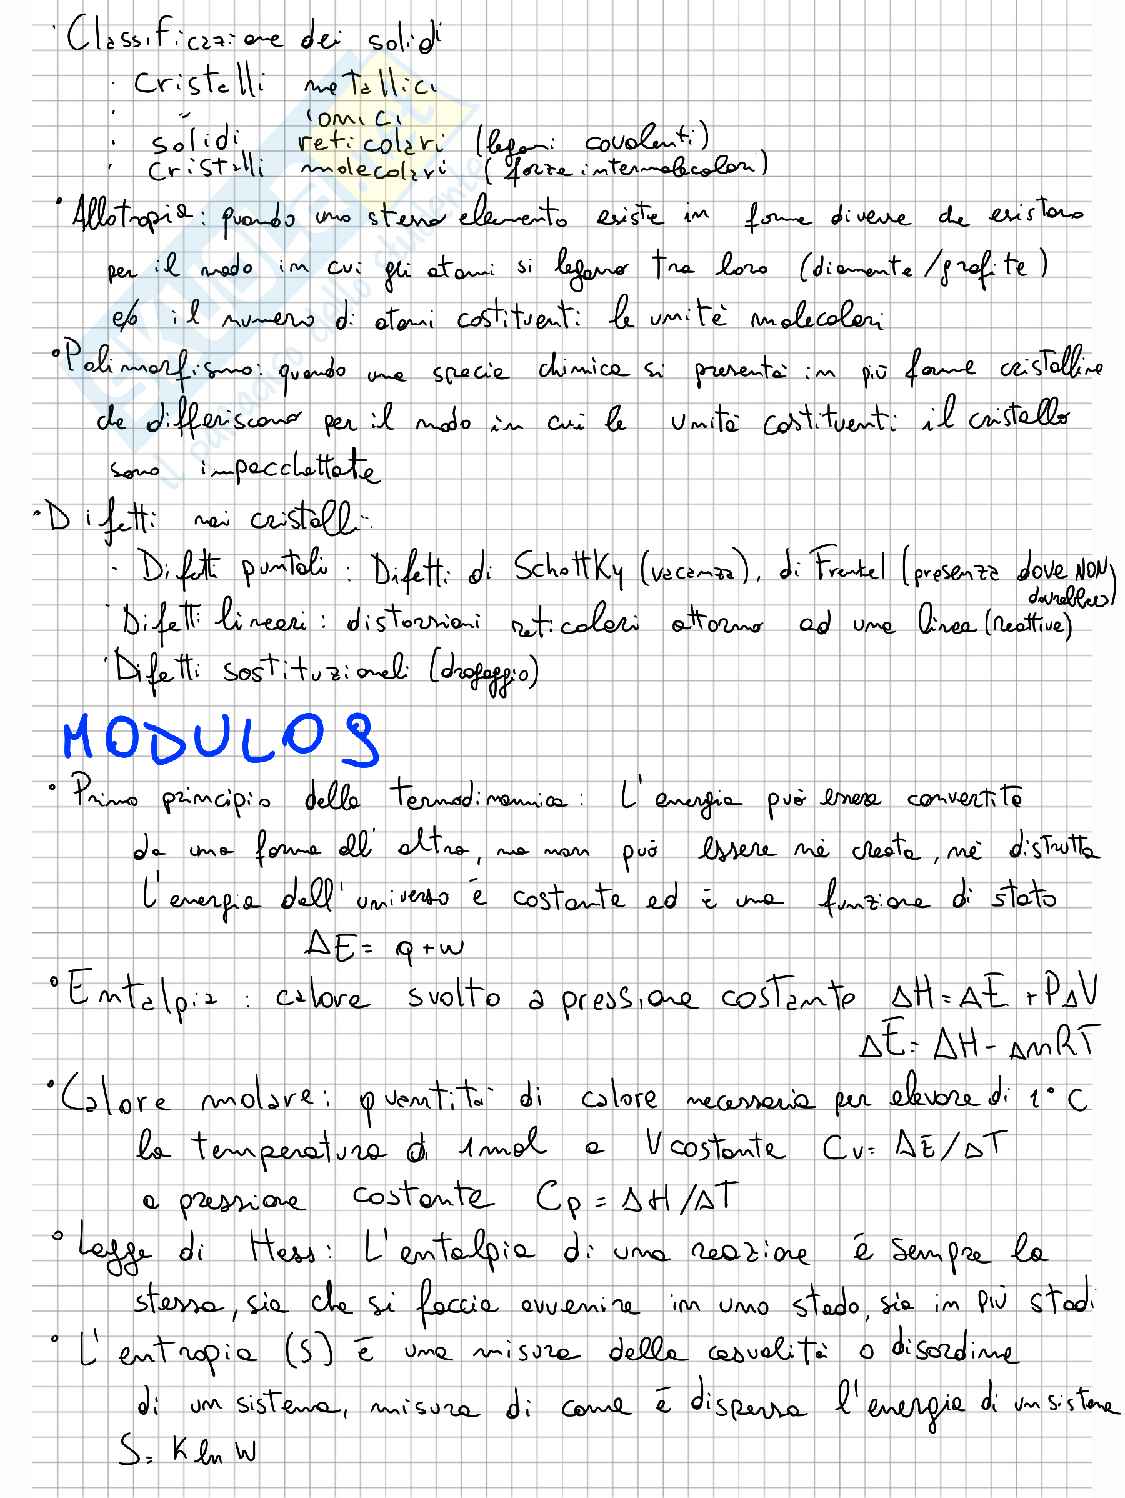 · Classificazione dei solidi
· cristalli metallici
· " ionici
· solidi reticolari (legami covalenti)
· cristalli molecolari (forze intermolecolari)
• Allotropia: quando uno stesso elemento esiste in forme diverse che esistono
per il modo in cui gli atomi si legano tra loro (diamante/grafite)
e/o il numero di atomi costituenti le unità molecolari
• Polimorfismo: quando una specie chimica si presenta in più forme cristalline
che differiscono per il modo in cui le unità costituenti il cristallo
sono impacchettate
• Difetti nei cristalli:
· Difetti puntali: Difetti di Schottky (vacanza), di Frenkel (presenza dove NON
dovrebbero)
· Difetti lineari: distorsioni reticolari attorno ad una linea (reattive)
· Difetti sostituzionali (drogaggio)
MODULO 9
• Primo principio della termodinamica: L'energia può essere convertita
da una forma all'altra, ma non può essere né creata, né distrutta
L'energia dell'universo è costante ed è una funzione di stato
ΔE = q + w
• Entalpia: calore svolto a pressione costante ΔH = ΔE + PΔV
ΔE = ΔH - ΔnRT
• Calore molare: quantità di calore necessaria per elevare di 1°C
la temperatura di 1 mol a V costante Cv = ΔE/ΔT
a pressione costante Cp = ΔH/ΔT
• Legge di Hess: L'entalpia di una reazione è sempre la
stessa, sia che si faccia avvenire in uno stado, sia in più stadi
• L'entropia (S) è una misura della casualità o disordine
di un sistema, misura di come è dispersa l'energia di un sistema
S = K ln W